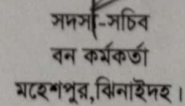 সদস্য-সচিব
বন কর্মকর্তা
মহেশপুর, ঝিনাইদহ।